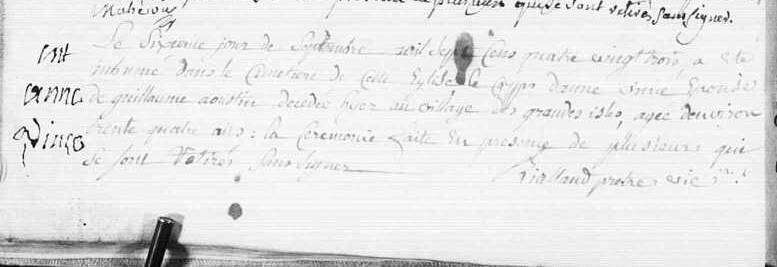 Mahéiou plusieurs qui se sont retirés sans signer.
Le Sixieme jour de Septembre mil Sept Cens quatre vingt trois, a eté
ent
inhumé dans le Cimetiere de cette Eglise le Corps d'anne vince Epouse
anne
de guillaume aoustin decedée hyer au village des grandes isles, agée d'environ
Vince
trente quatre ans : la Ceremonie faite en presence de plusieurs qui
Se sont Retirés Sans Signer
Viallaud pretre vic.